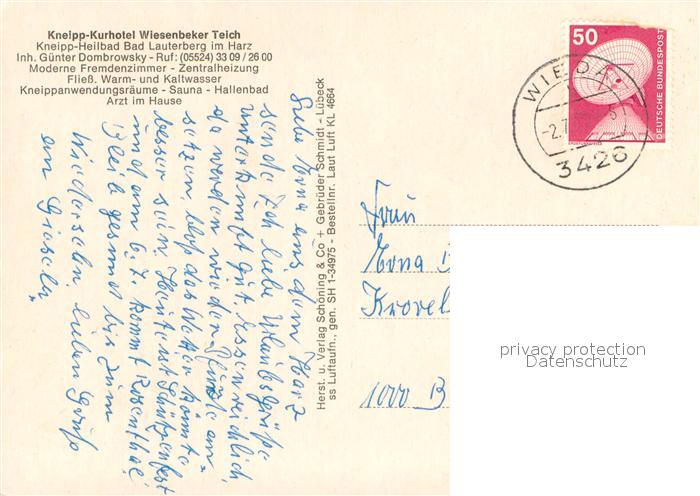 Kneipp-Kurhotel Wiesenbeker Teich
Kneipp-Heilbad Bad Lauterberg im Harz
Inh. Günter Dombrowsky - Ruf: (05524) 33 09 / 26 00
Moderne Fremdenzimmer - Zentralheizung
Fließ. Warm- und Kaltwasser
Kneippanwendungsräume - Sauna - Hallenbad
Arzt im Hause
Liebe Erna aus dem Harz
sende Dir liebe Urlaubsgrüße
unterkunft gut. Essen reichlich
da werden wieder Pfunde an-
setzen, bloß das Wetter könnte
besser sein. Heute ist Schützenfest
und am 6.7. kommt Rosenthal
Bleib gesund bis zum
Wiedersehn lieben Gruß
an Gisela
Herst. u. Verlag Schöning & Co + Gebrüder Schmidt - Lübeck
ss Luftaufn., gen. SH 1-34975 - Bestellnr. Laut Luft KL 4664
50
DEUTSCHE BUNDESPOST
WIEDA
-2.7.
3426
Frau
Erna
1000 B
privacy protection
Datenschutz